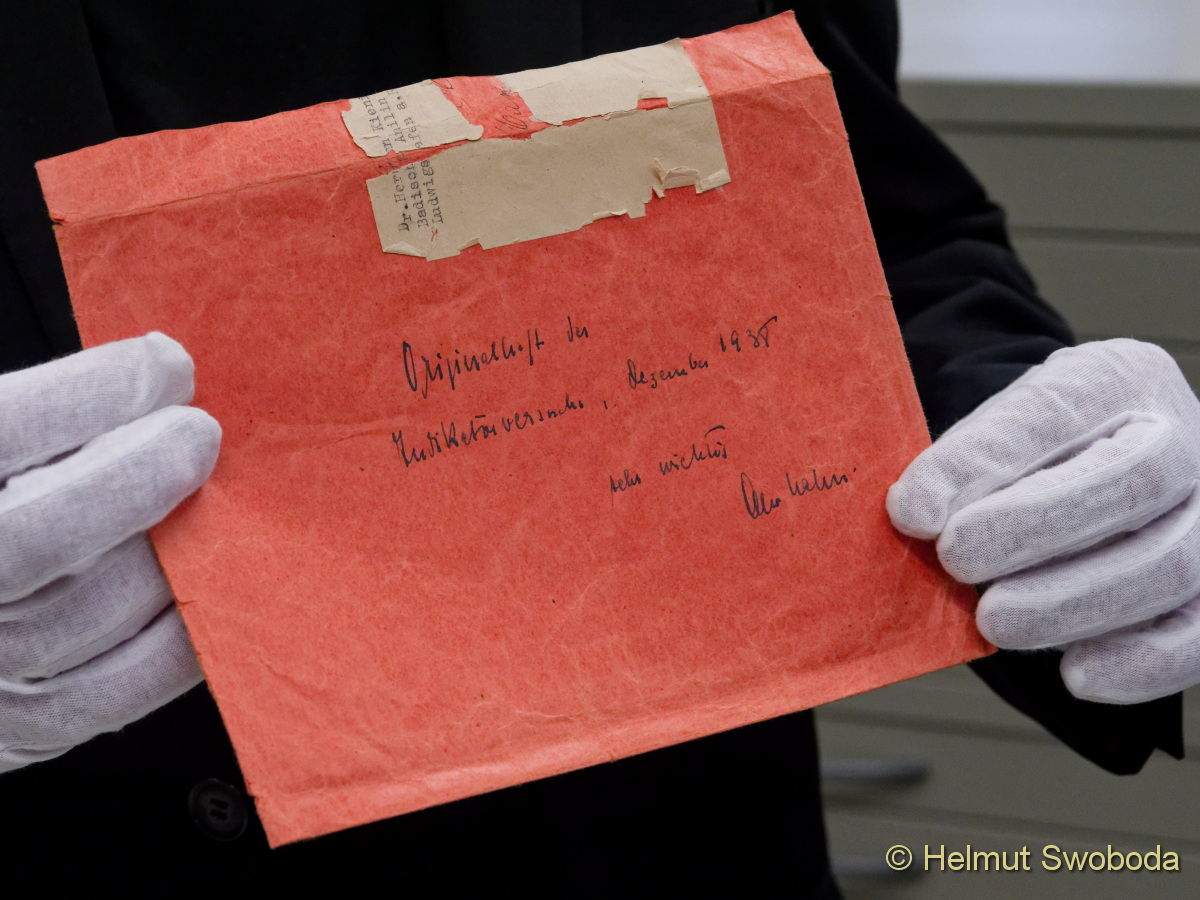 Dr.Hermann Kien
Badische Anilin
Ludwigshafen a.
Originalheft der
Indikatorversuche, Dezember 1938
sehr wichtig
Otto Hahn.
© Helmut Swoboda